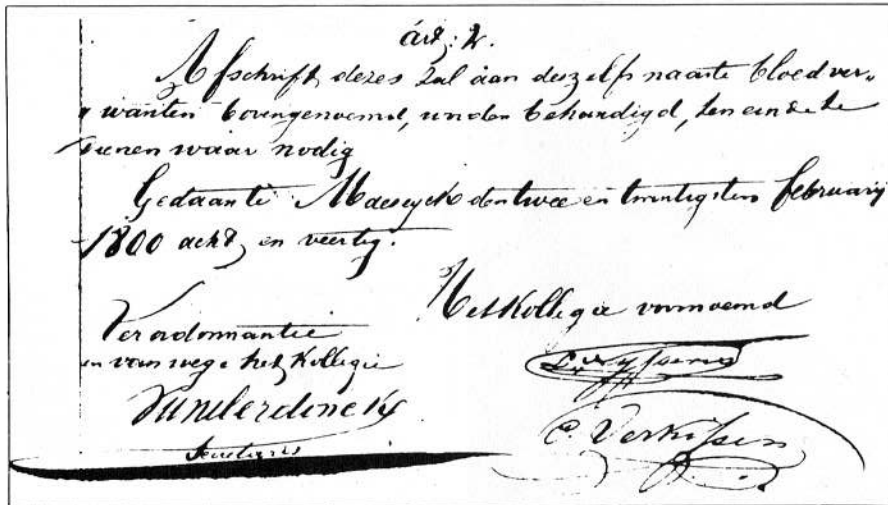 art: 2.
Afschrift dezes zal aan deszelfs naaste bloedver„
„wanten bovengenoemd, worden behandigd, ten einde te
dienen waar nodig
Gedaan te Maeseyck den twee en twintigsten february
1800 acht en veertig.
Het Kollegie voornoemd
Ver ordonnantie
en van wege het Kollegie
Vunclerdinckx
Secretaris
C. Verkissen